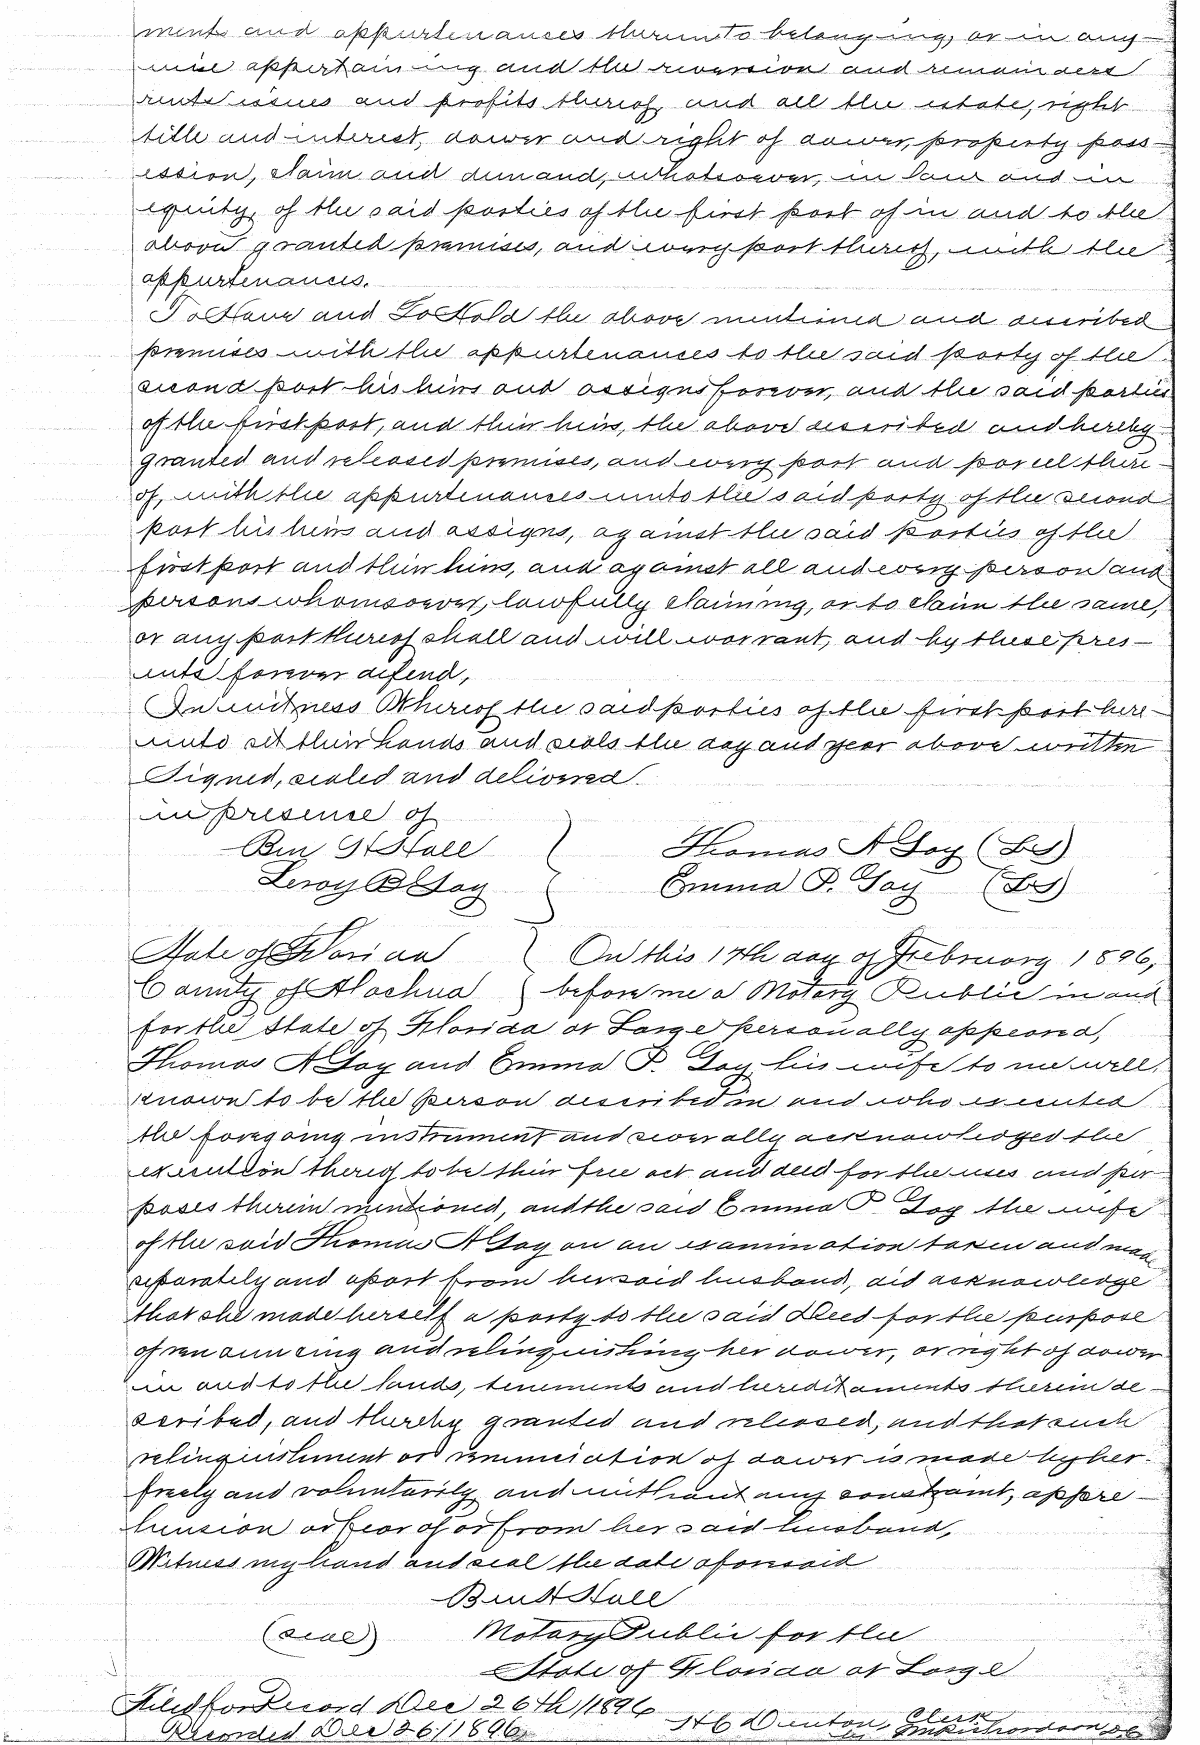 ments and appurtenances thereunto belonging, or in any-
wise appertaining and the reversion and remainders
rents issues and profits thereof, and all the estate, right
title and interest, dower and right of dower, property poss-
ession, claim and demand, whatsoever, in law and in
equity, of the said parties of the first part of in and to the
above granted premises, and every part thereof, with the
appurtenances.
To Have and To Hold the above mentioned and described
premises with the appurtenances to the said party of the
second part his heirs and assigns forever, and the said parties
of the first part, and their heirs, the above described and hereby
granted and released premises, and every part and parcel there-
of, with the appurtenances unto the said party of the second
part his heirs and assigns, against the said parties of the
first part and their heirs, and against all and every person and
persons whomsoever, lawfully claiming, or to claim the same,
or any part thereof shall and will warrant, and by these pres-
ents forever defend,
In witness Whereof the said parties of the first part here-
unto set their hands and seals the day and year above written
Signed, sealed and delivered
in presence of
Ben H Hall } Thomas A Gay (LS)
Leroy B Gay Emma P. Gay (LS)
State of Florida } On this 17th day of February 1896,
County of Alachua } before me a Notary Public in and
for the State of Florida at Large personally appeared,
Thomas A Gay and Emma P. Gay his wife to me well,
known to be the person described in and who executed
the foregoing instrument and severally acknowledged the
execution thereof to be their free act and deed for the uses and pur
poses therein mentioned, and the said Emma P. Gay the wife
of the said Thomas A Gay on an examination taken and made
separately and apart from her said husband, did acknowledge
that she made herself a party to the said Deed for the purpose
of renouncing and relinquishing her dower, or right of dower
in and to the lands, tenements and hereditaments therein de-
scribed, and thereby granted and released, and that such
relinquishment or renunciation of dower is made by her
freely and voluntarily and without any constraint, appre-
hension or fear of or from her said husband,
Witness my hand and seal the date aforesaid
Ben H Hall
(seal) Notary Public for the
State of Florida at Large
Filed for Record Dec 26th/1896 H C Denton, Clerk
Recorded Dec 26/1896